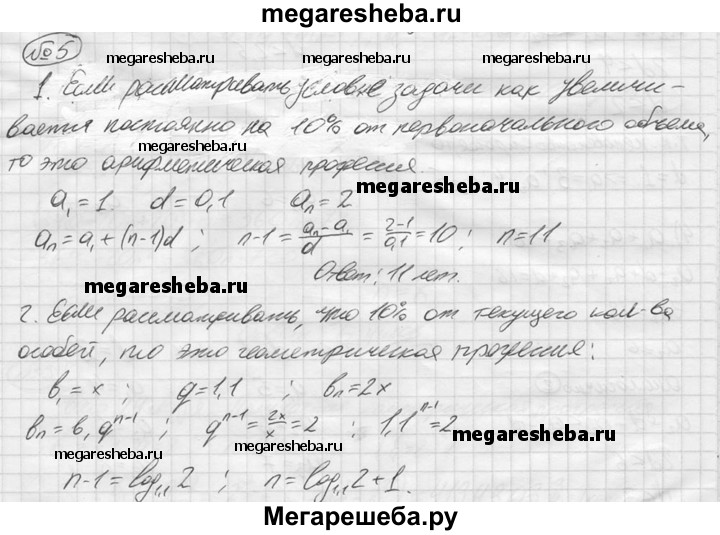 megaresheba.ru
№5
megaresheba.ru megaresheba.ru
1. Если рассматривать условие задачи как увеличи-
вается постоянно на 10% от первоначального объема,
то это арифметическая прогрессия
megaresheba.ru
a₁ = 1. d = 0,1 aₙ = 2
aₙ = a₁ + (n-1)d ; n-1 = (aₙ - a₁)/d = (2-1)/0,1 = 10 ; n = 11
megaresheba.ru
Ответ: 11 лет.
megaresheba.ru
2. Если рассматривать, что 10% от текущего кол-ва
особей, то это геометрическая прогрессия:
megaresheba.ru
b₁ = x ; q = 1,1 ; bₙ = 2x
bₙ = b₁ qⁿ⁻¹ ; qⁿ⁻¹ = 2x/x = 2 ; 1,1ⁿ⁻¹ = 2
megaresheba.ru megaresheba.ru
megaresheba.ru
n-1 = log₁,₁ 2 ; n = log₁,₁ 2 + 1.
Мегарешеба.ру